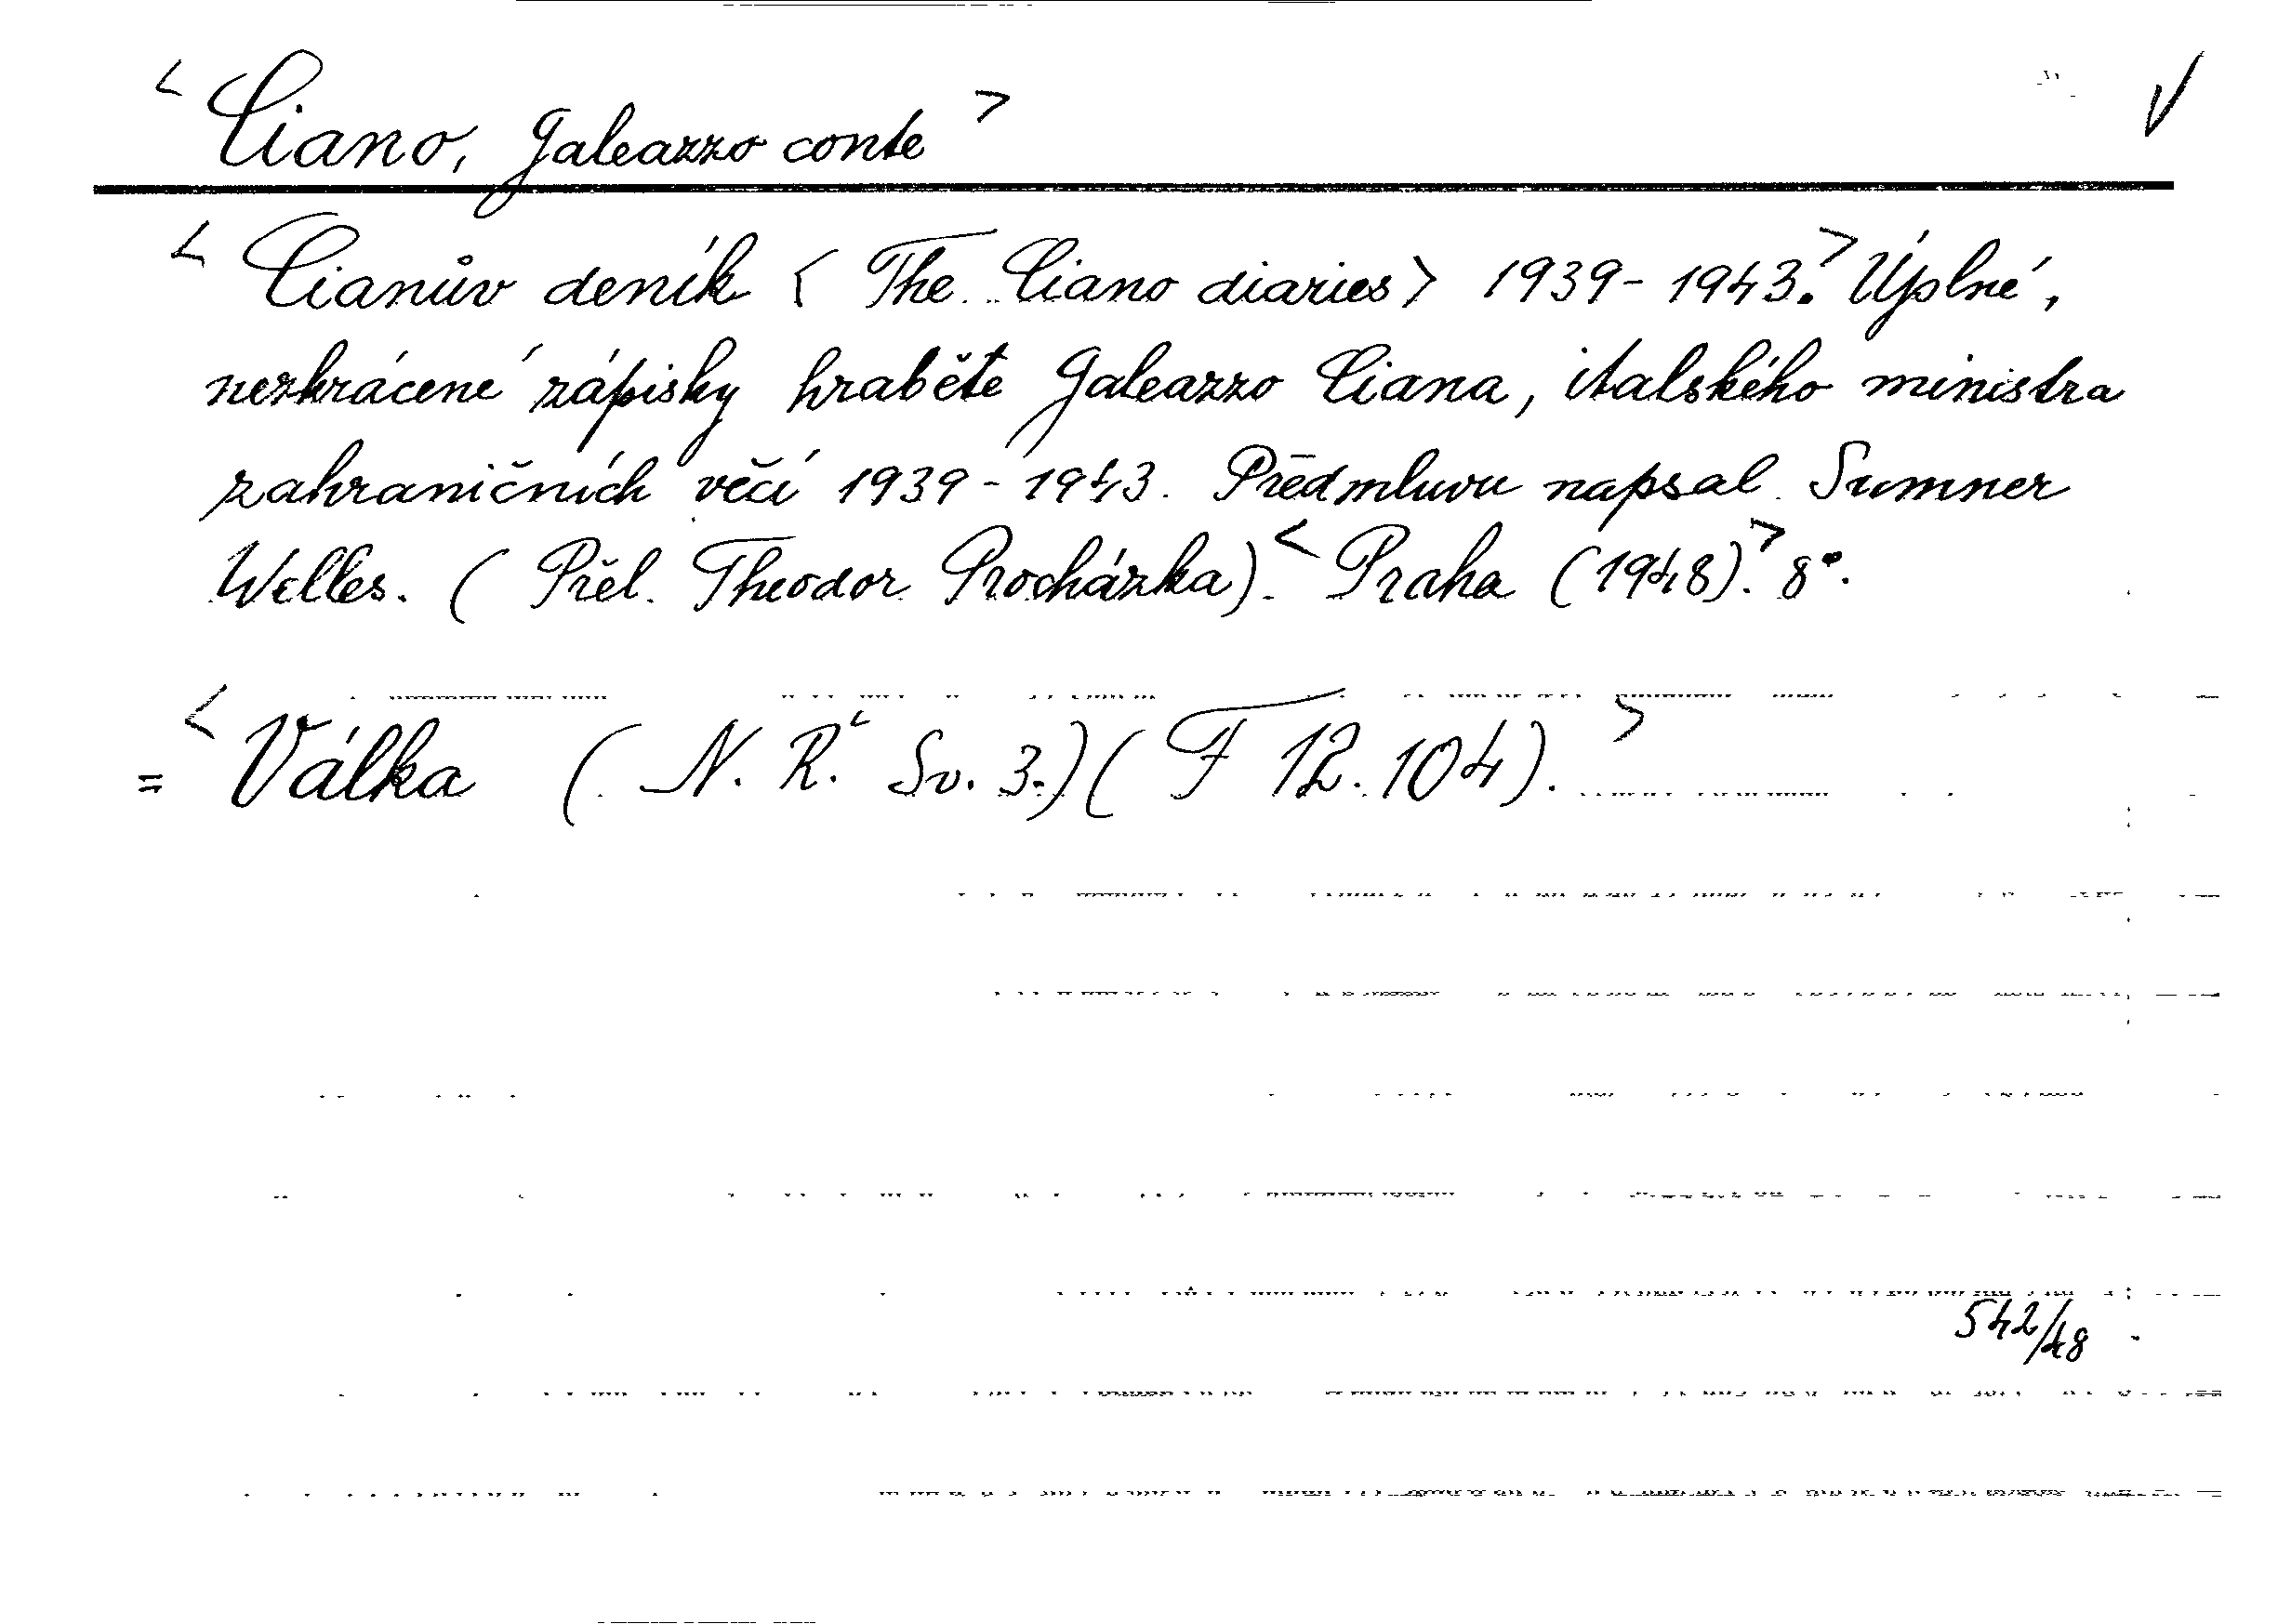 < Ciano, Galeazzo conte > √
< Cianův deník < The Ciano diaries > 1939-1943. > Úplné,
nezkrácené zápisky hraběte Galeazzo Ciana, italského ministra
zahraničních věcí 1939-1943. Předmluvu napsal Sumner
Welles. ( Přel. Theodor Procházka). < Praha (1948). > 8°.
= < Válka ( N. R. < Sv. 3.) ( F 12.104). >
542/48